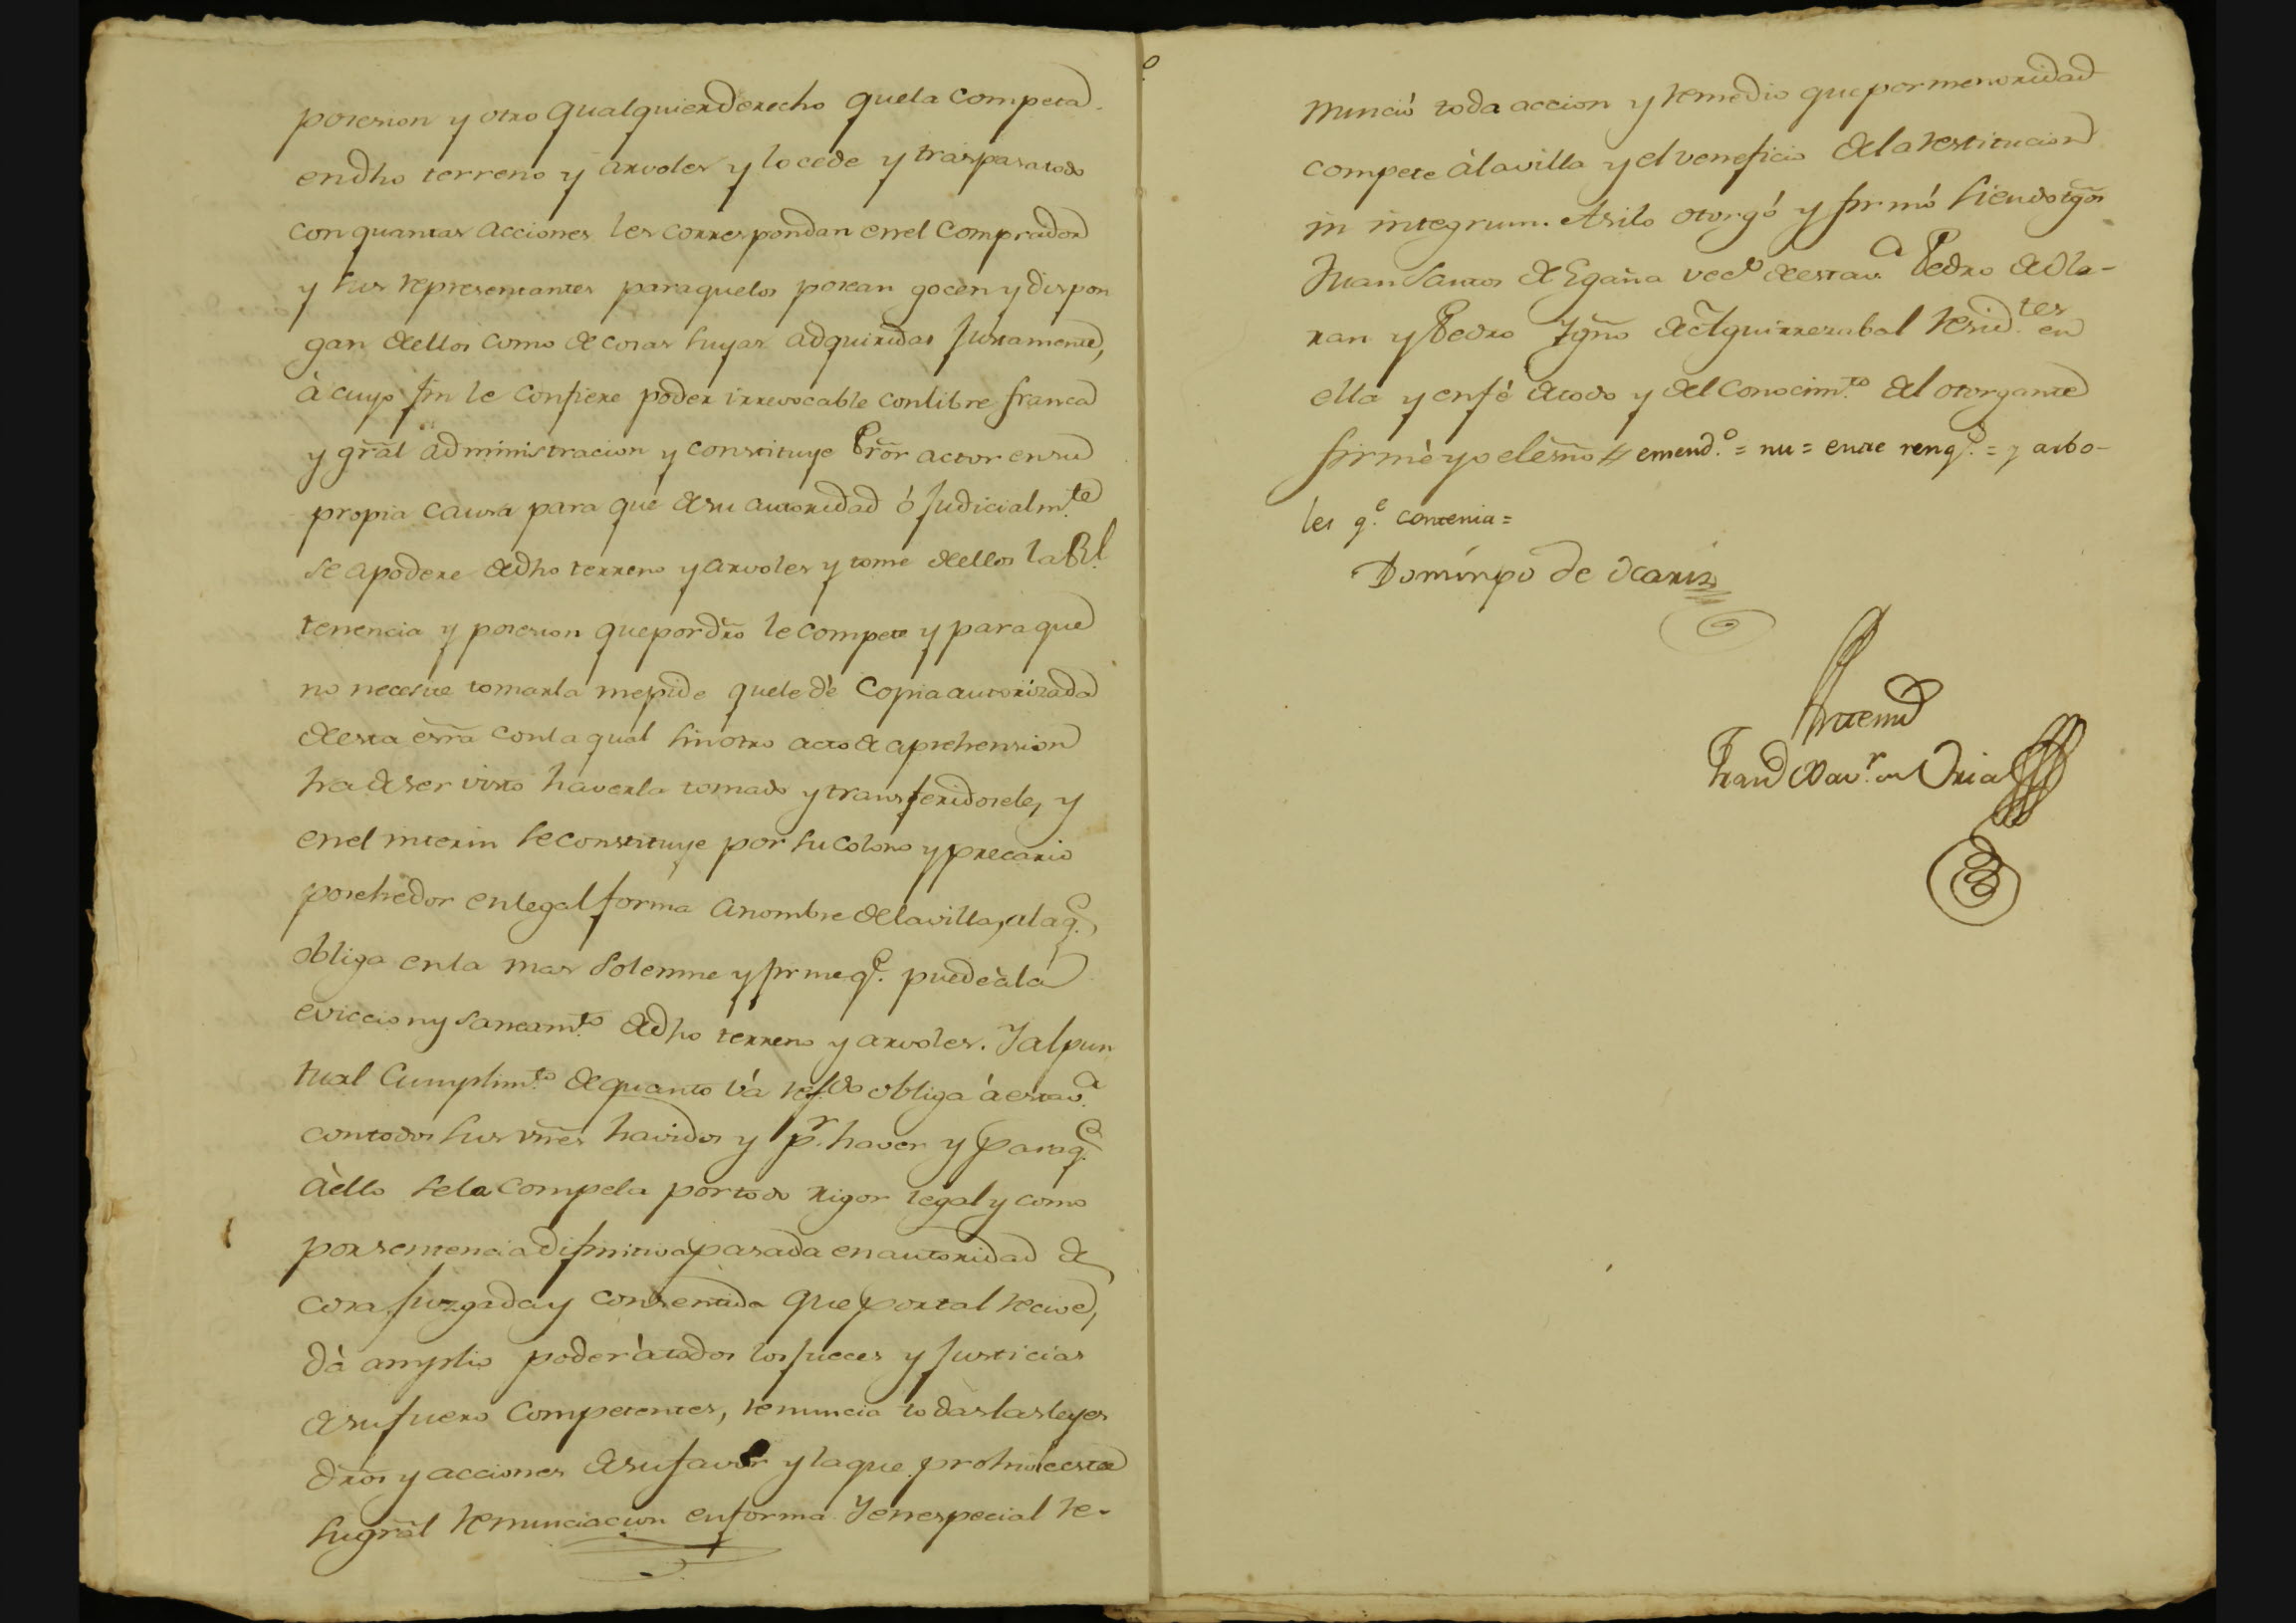 posesion y otro qualquier derecho que la competa
en dho terreno y arvoles y lo cede y traspasa todo
con quantas acciones les correspondan en el Comprador
y sus representantes para que los posean gocen y dispon
gan de ellos como de cosas suyas adquiridas justamente,
à cuyo fin le confiere poder irrevocable con libre franca
y gral administracion y constituye Pror actor en su
propia causa para que de su autoridad ó judicialm.te
se apodere de dho terreno y arvoles y tome de ellos la Rl.
tenencia y posesion que por dro le compete y para que
no necesite tomarla me pide que le dè Copia autorizada
de esta esra con la qual sin otro acto de aprehension
ha de ser visto haverla tomado y transferidosele, y
en el interin se constituye por su colono y precario
posehedor en legal forma a nombre de la villa, a la q.e
obliga en la mas solemne y firme q.e puede à la
eviccion y saneam.to de dho terreno y arvoles. Y al pun
tual Cumplim.to de quanto và refdo obliga à esta v.a
con todos sus vnes havidos y p.r haver y para q.e
à ello se la compela por todo rigor legal y como
por sentencia difinitiva pasada en autoridad de
cosa juzgada y consentida que por tal recive,
dà amplio poder à todos los jueces y justicias
de su fuero Competentes, renuncia todas las leyes
dros y acciones de su favor y la que prohive esta
su gral renunciacion en forma. Y en especial re-
nunció toda accion y remedio que por menoridad
compete à la villa y el veneficio de la restitucion
in integrum. Asi lo otorgó y firmó siendo tgos
Juan Santos de Egaña vec.o de esta v.a Pedro de Ola-
ran y Pedro Ygno de Aguirrezabal resid.tes en
ella y en fé de todo y del conocim.to del otorgante
firmè yo el esno // emend.o = nu = entre reng.s = y arbo-
les q.e contenia =
Domingo de Ocariz
Ante mi
Fran.co Xav.r de Oria